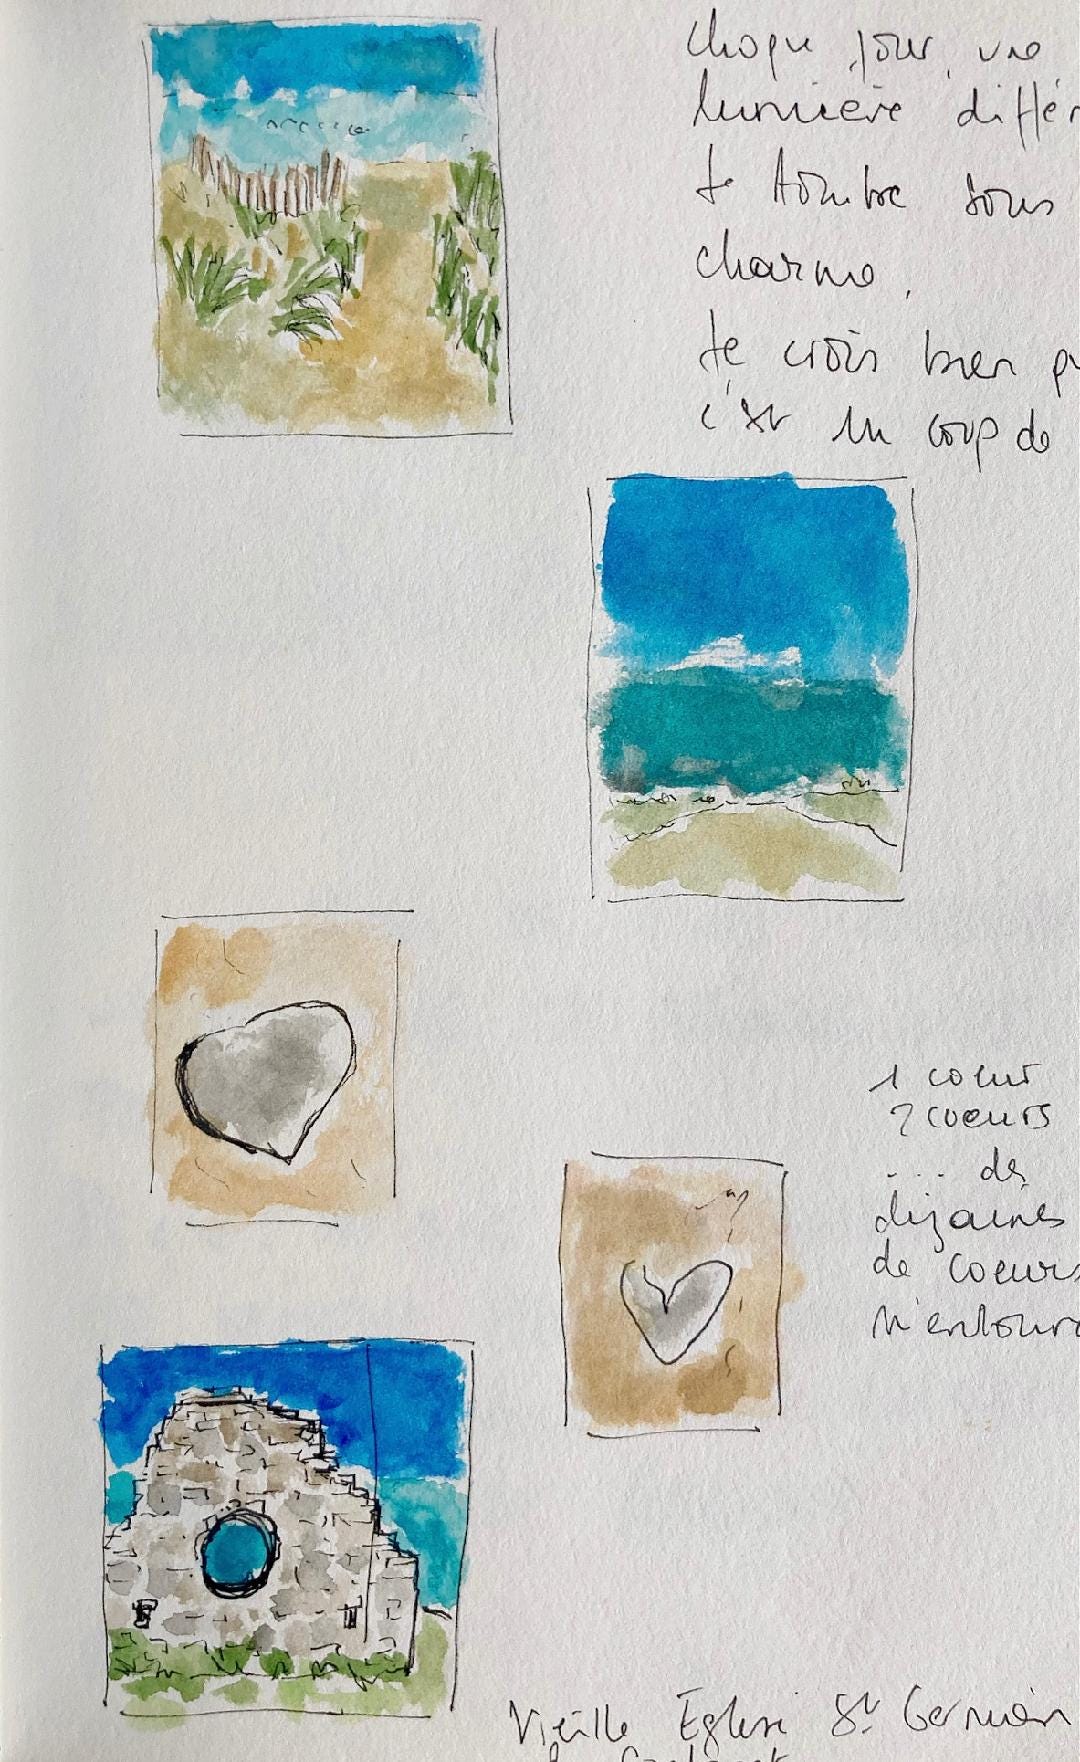 chaque jour, une
lumière différ
Je tombe sous
charme.
Je crois bien qu
c'est un coup de
1 coeur
2 coeurs
... des
dizaines
de coeurs
m'entoure
Vieille Eglise St Germain